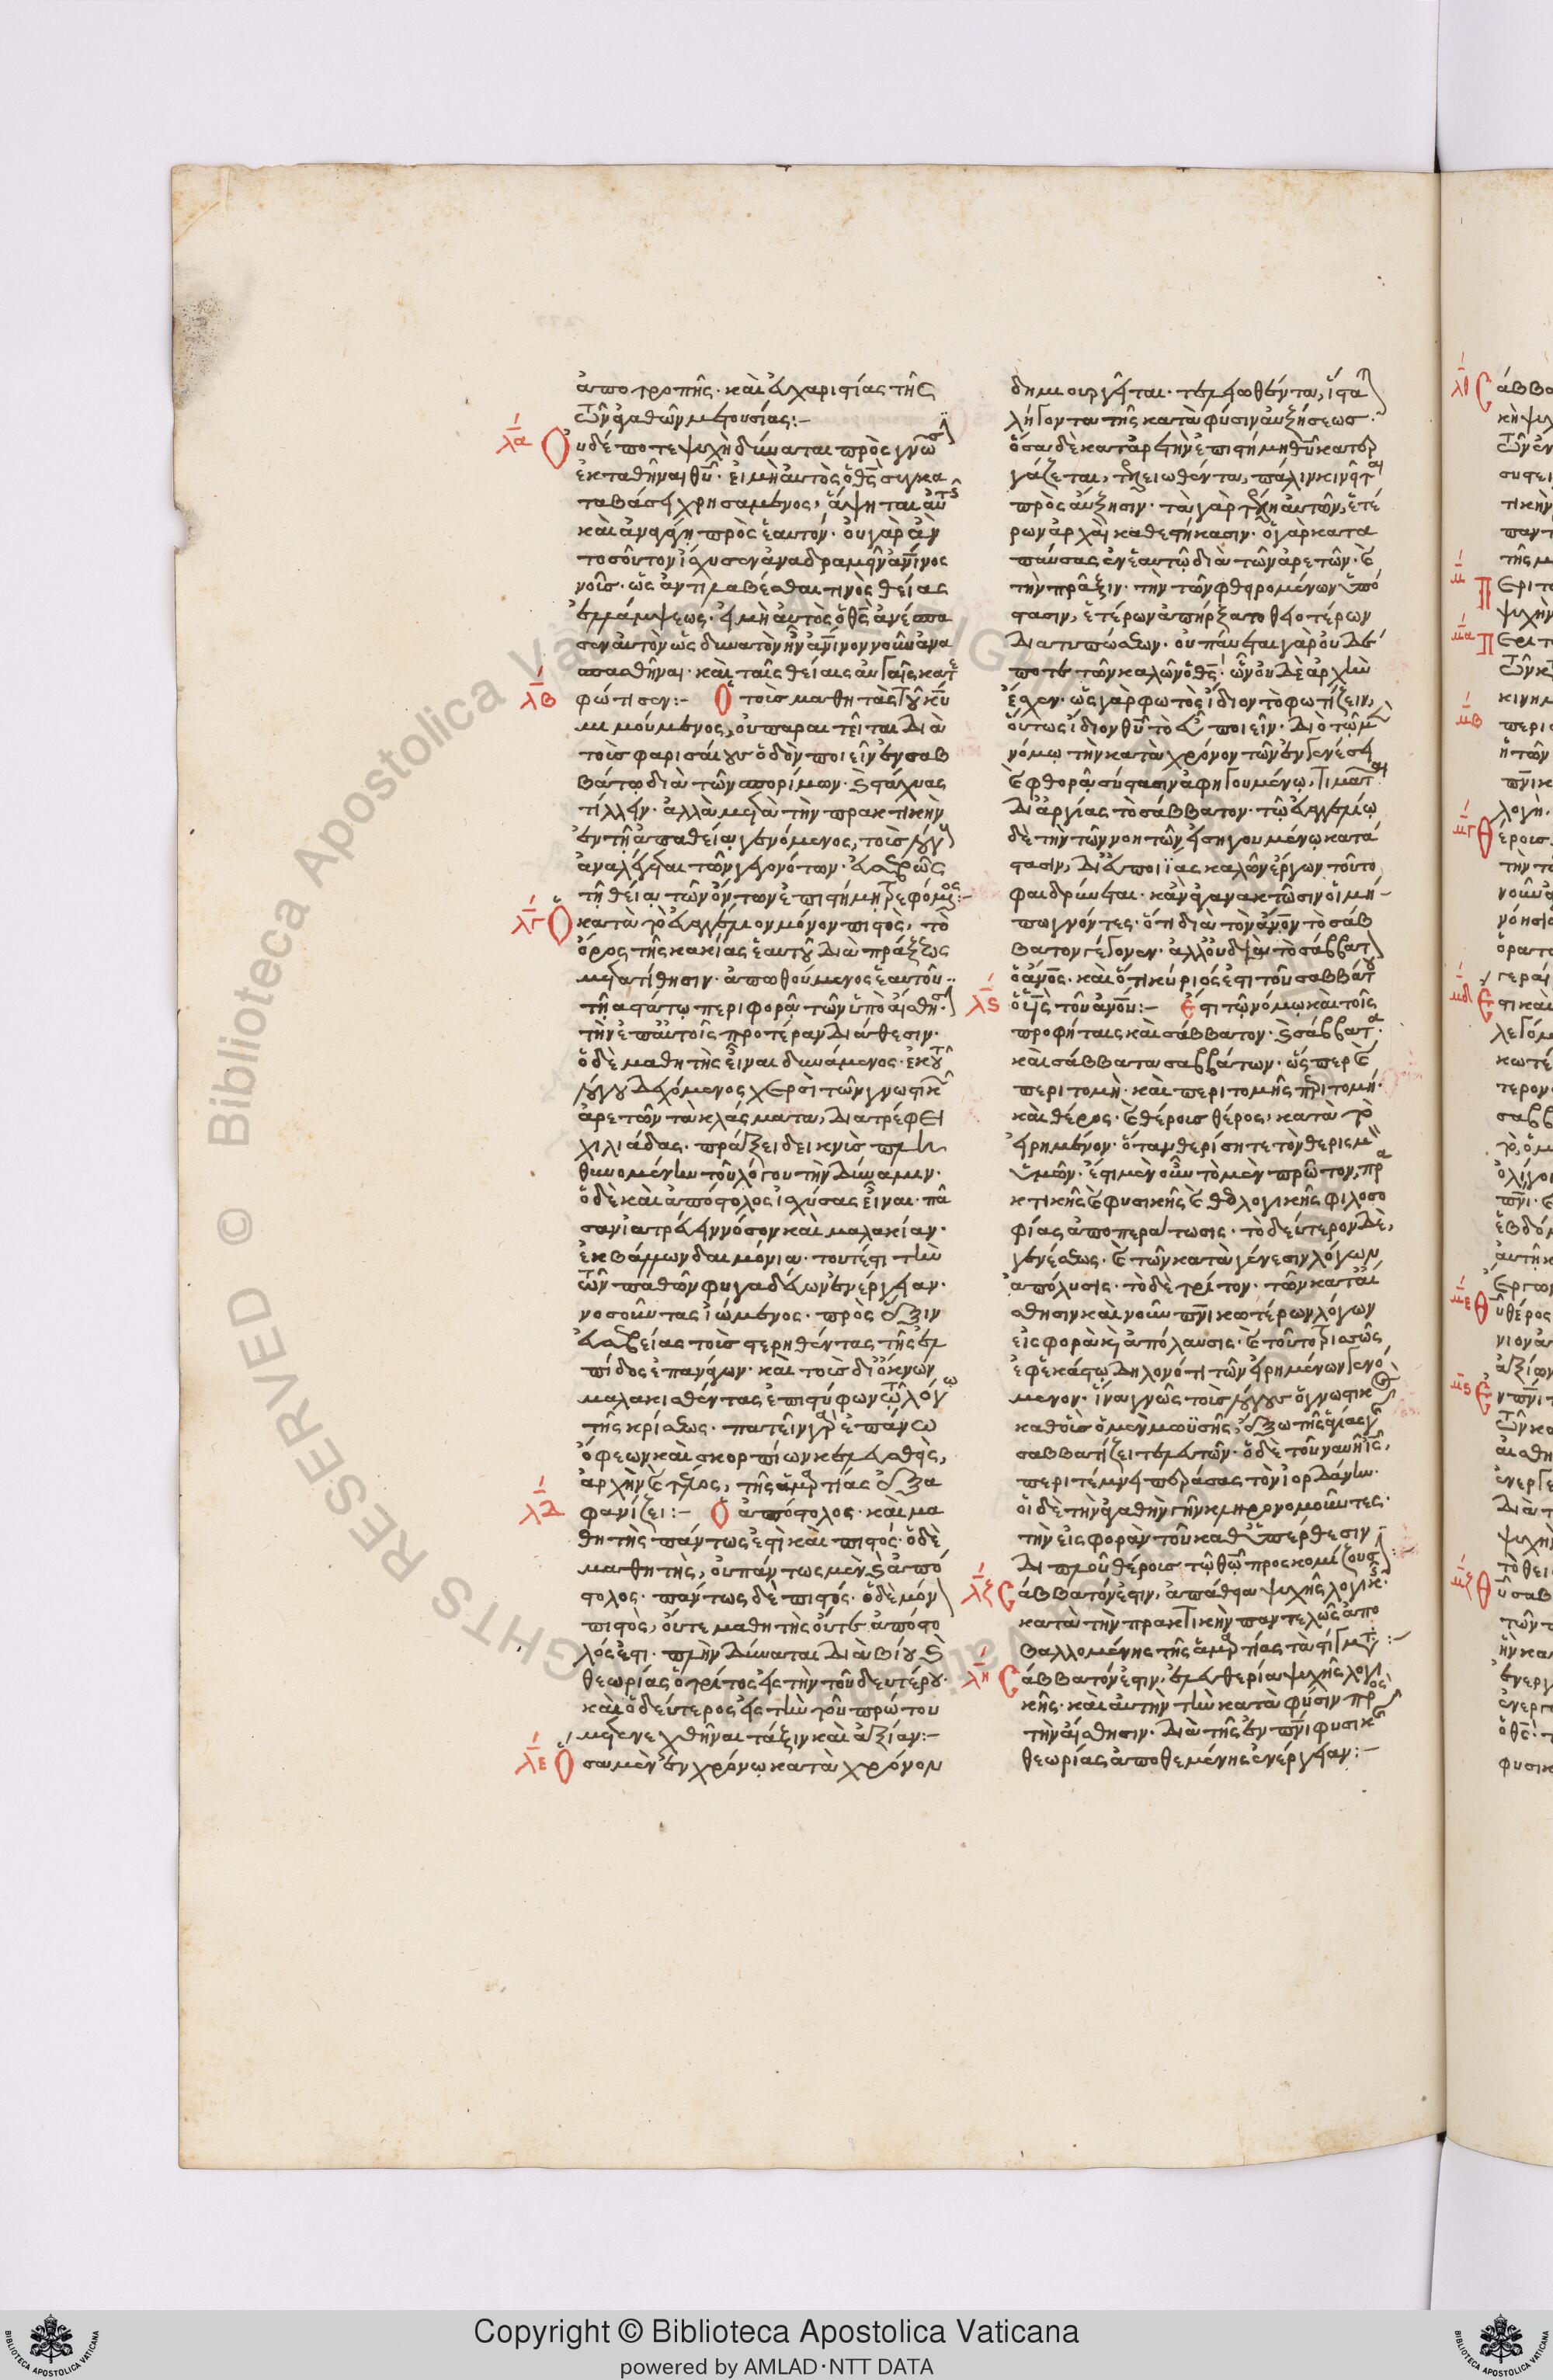 ἀποτροπῆς· καὶ εὐχαριστίας τῆς
τῶν ἀγαθῶν μετουσίας:–
λα Οὐδέποτε ψυχὴ δύναται πρὸς γνῶσιν
ἐκταθῆναι θυ̅· εἰ μὴ αὐτὸς ὁ θς̅ συγκα
ταβάσει χρησάμενος, ἅψηται αὐτῆς
καὶ ἀναγάγῃ πρὸς ἑαυτόν· οὐ γὰρ ἂν
τοσοῦτον ἴσχυσεν ἀναδραμεῖν ἀνίνος
νοῦς· ὡς ἀντιλαβέσθαι τινὸς θείας
ἐλλάμψεως· εἰ μὴ αὐτὸς ὁ θς̅ ἀνέσπα
σεν αὐτὸν ὡς δυνατὸν ἦν ἀνίνον νοῦν ἀνα
σπασθῆναι· καὶ ταῖς θείαις αὐγαῖς κατε
λβ φώτισεν:– Ὁ τοὺς μαθητὰς τοῦ κυ̅
μιμούμενος, οὐ παραιτεῖται διὰ
τοὺς φαρισαίους ὁδὸν ποιεῖν ἐν σαβ
βάτῳ διὰ τῶν σπορίμων· καὶ στάχυας
τίλλειν· ἀλλὰ μετὰ τὴν πρακτικὴν
ἐν τῇ ἀπαθείᾳ γενόμενος, τοὺς λόγους
ἀναλέγεται τῶν γεγονότων· εὐσεβῶς
τῇ θείᾳ τῶν ὄντων ἐπιστήμῃ τρεφόμενος:–
λγ Ὁ κατὰ τὸ εὐαγγέλιον μόνον πιστὸς, τὸ
ὄρος τῆς κακίας ἑαυτοῦ διὰ πράξεως
μετατίθησιν· ἀπωθούμενος ἑαυτοῦ
τῇ ἀστάτῳ περιφορᾷ τῶν ὑπὸ αἴσθησιν
τὴν ἐπ' αὐτοῖς προτέραν διάθεσιν·
ὁ δὲ μαθητὴς εἶναι δυνάμενος· ἐκ τοῦ
λόγου δεχόμενος χερσὶ τῶν γνωστικῶν
ἀρετῶν τὰ κλάσματα, διατρέφει
χιλιάδας· πράξει δεικνὺς πλη
θυνομένην τοῦ λόγου τὴν δύναμιν·
ὁ δὲ καὶ ἀπόστολος ἰσχύσας εἶναι· πᾶ
σαν ἰατρεύει νόσον καὶ μαλακίαν·
ἐκβάλλων δαιμόνια· τουτέστι τὴν
τῶν παθῶν φυγαδεύων ἐνέργειαν·
νοσοῦντας ἰώμενος· πρὸς ἕξιν
εὐσεβείας τοὺς στερηθέντας τῆς ἐλ
πίδος ἐπανάγων· καὶ τοὺς δι' ὄκνον
μαλακισθέντας ἐπιστύφων τῷ λόγῳ
τῆς κρίσεως· πατεῖν γὰρ ἐπάνω
ὄφεων καὶ σκορπίων κελευσθεὶς,
ἀρχὴν καὶ τέλος, τῆς ἁμαρτίας ἐξα
λδ φανίζει:– Ὁ ἀπόστολος· καὶ μα
θητὴς πάντως ἐστὶ καὶ πιστός· ὁ δὲ
μαθητὴς, οὐ πάντως μὲν καὶ ἀπό
στολος· πάντως δὲ πιστός· ὁ δὲ μόνον
πιστὸς, οὔτε μαθητὴς οὔτε ἀπόστο
λός ἐστι· πλὴν δύναται διὰ βίου καὶ
θεωρίας ὁ τρίτος εἰς τὴν τοῦ δευτέρου·
καὶ ὁ δεύτερος εἰς τὴν τοῦ πρώτου
μετενεχθῆναι τάξιν καὶ ἀξίαν:–
λε Ὅσα μὲν ἐν χρόνῳ κατὰ χρόνον
δημιουργεῖται· τελειωθέντα, ἵσταται
λήγοντα τῆς κατὰ φύσιν αὐξήσεως·
ὅσα δὲ κατ' ἀρετὴν ἐπιστήμη θυ̅ κατερ
γάζεται, τελειωθέντα, πάλιν κινεῖται
πρὸς αὔξησιν· τὰ γὰρ τέλη αὐτῶν, ἑτέ
ρων ἀρχαὶ καθεστήκασιν· ὁ γὰρ κατα
παύσας ἐν ἑαυτῷ διὰ τῶν ἀρετῶν· καὶ
τὴν πρᾶξιν· τὴν τῶν φθειρομένων ὑπό
στασιν, ἑτέρων ἀπήρξατο θειοτέρων
διατυπώσεων· οὐ παύεται γὰρ οὐδέ
ποτε τῶν καλῶν ὁ θς̅· ὧν οὐδὲ ἀρχὴν
ἔσχεν· ὡς γὰρ φωτὸς ἴδιον τὸ φωτίζειν,
οὕτως ἴδιον θυ̅ τὸ εὖ ποιεῖν· διὸ τῷ μὲν
νόμῳ τὴν κατὰ χρόνον τῶν ἐν γενέσει
καὶ φθορᾷ σύστασιν ἀφηγουμένῳ, τιμᾶται
δι' ἀργίας τὸ σάββατον· τῷ εὐαγγελίῳ
δὲ τὴν τῶν νοητῶν εἰσηγουμένῳ κατά
στασιν, δι' εὐποιΐας καλῶν ἔργων τοῦτο
φαιδρύνεται· κἂν ἀγανακτῶσιν οἱ μή
πω γνόντες· ὅτι διὰ τὸν ἀνον̅ τὸ σάβ
βατον γέγονεν· ἀλλ' οὐ διὰ τὸ σάββατον
ὁ ἀνος̅· καὶ ὅτι κύριός ἐστι τοῦ σαββάτου
λς ὁ υς̅ τοῦ ἀνου̅:– Ἔστι τῷ νόμῳ καὶ τοῖς
προφήταις καὶ σάββατον· καὶ σάββατα·
καὶ σάββατα σαββάτων· ὥσπερ καὶ
περιτομὴ· καὶ περιτομῆς περιτομή·
καὶ θέρος· καὶ θέρους θέρος, κατὰ τὸ
εἰρημένον· ὅταν θερίσητε τὸν θερισμὸν
ὑμῶν· ἔστι μὲν οὖν τὸ μὲν πρῶτον, πρα
κτικῆς καὶ φυσικῆς καὶ θεολογικῆς φιλοσο
φίας ἀποπεράτωσις· τὸ δεύτερον δὲ,
γενέσεως· καὶ τῶν κατὰ γένεσιν λόγων
ἀπόλυσις· τὸ δὲ τρίτον· τῶν κατ' αἴ
σθησιν καὶ νοῦν πνικωτέρων λόγων
εἰσφορὰ καὶ ἀπόλαυσις· καὶ τοῦτο τρισσῶς
ἐφ' ἑκάστῳ δηλονότι τῶν εἰρημένων γενό
μενον· ἵνα γνῷς τοὺς λόγους ὁ γνωστικὸς
καθ' οὓς ὁ μὲν μωϋσῆς, ἔξω τῆς ἁγίας γῆς
σαββατίζει τελευτῶν· ὁ δὲ τοῦ ναυῆ ις̅,
περιτέμνει περάσας τὸν ἰορδάνην·
οἱ δὲ τὴν ἀγαθὴν γῆν κληρονομοῦντες·
τὴν εἰσφορὰν τοῦ καθ' ὑπέρθεσιν
διπλοῦ θέρους τῷ θῷ προσκομίζουσι:–
λζ Σάββατόν ἐστιν, ἀπάθεια ψυχῆς λογικῆς·
κατὰ τὴν πρακτικὴν παντελῶς ἀπο
βαλλομένης τῆς ἁμαρτίας τὰ στίγματα:–
λη Σάββατόν ἐστιν, ἐλευθερία ψυχῆς λογι
κῆς· καὶ αὐτὴν τὴν κατὰ φύσιν πρὸς
τὴν αἴσθησιν· διὰ τῆς ἐν πνι̅ φυσικῆς
θεωρίας ἀποθεμένης ἐνέργειαν:–
Copyright © Biblioteca Apostolica Vaticana
powered by AMLAD·NTT DATA